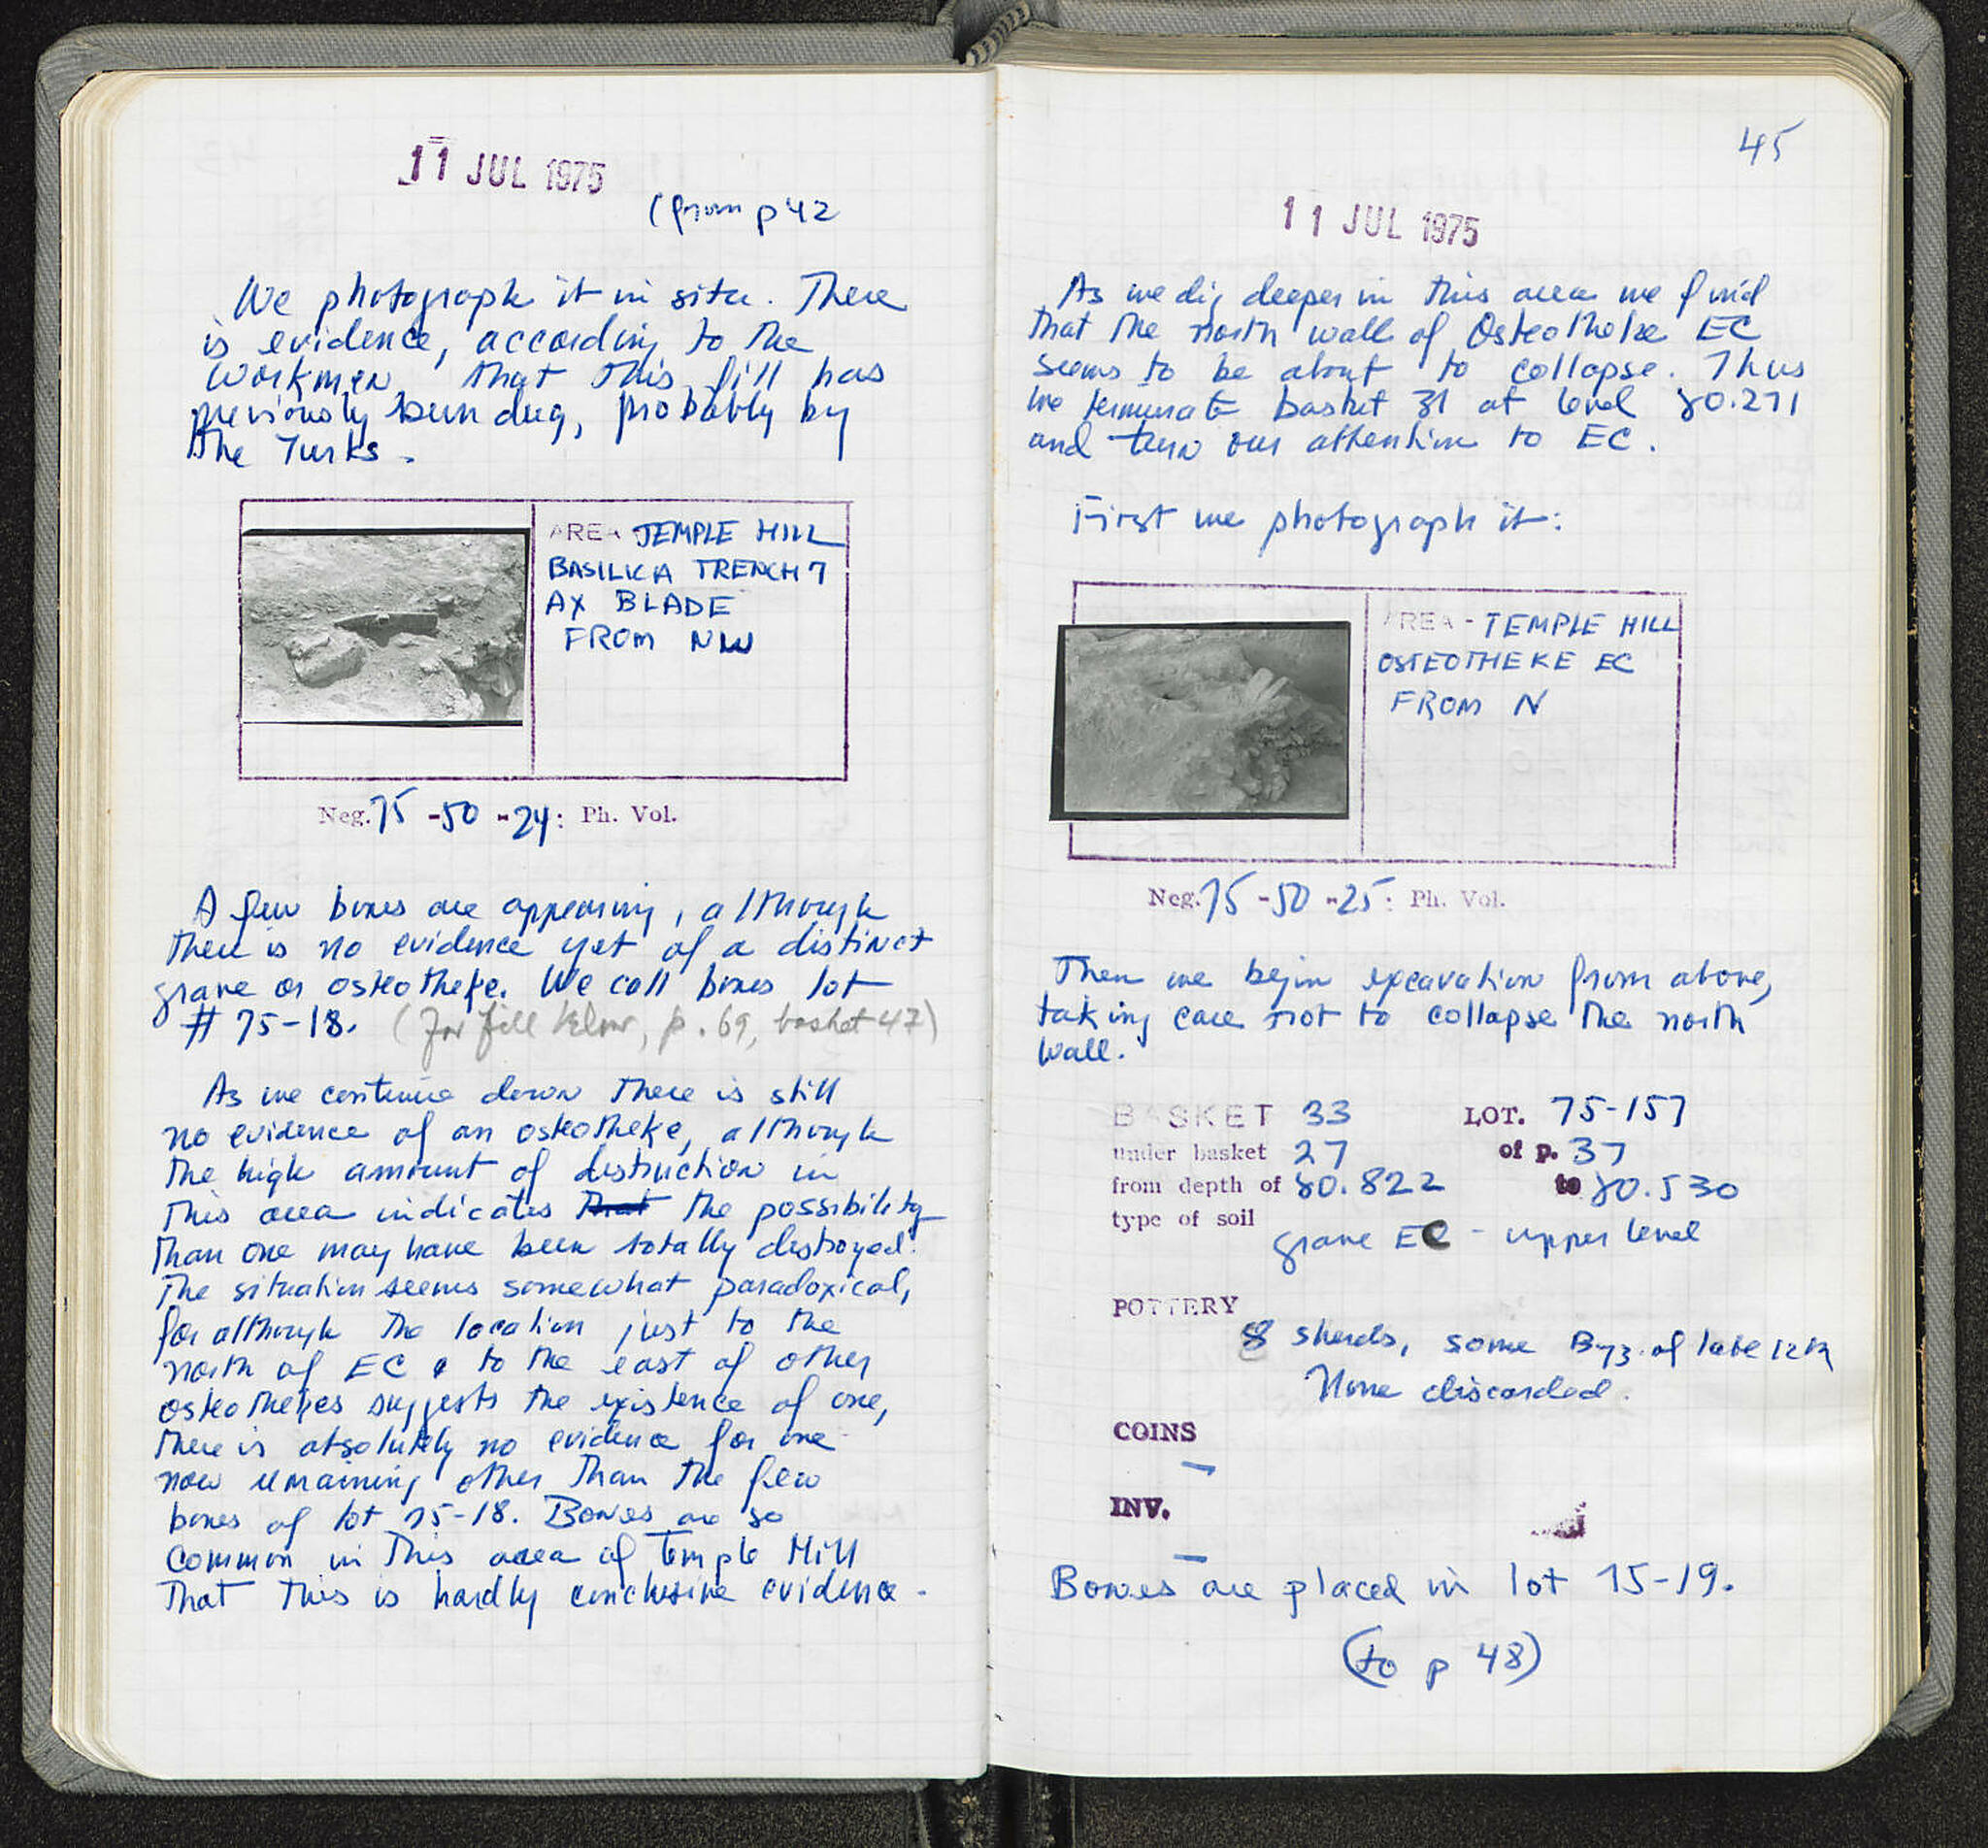 11 JUL 1975
(from p 42
We photograph it in situ. There
is evidence, according to the
workmen, that this fill has
previously been dug, probably by
the Turks.
AREA - TEMPLE HILL
BASILICA TRENCH 7
AX BLADE
FROM NW
Neg. 75 - 50 - 24 : Ph. Vol.
A few bones are appearing, although
there is no evidence yet of a distinct
grave or osteotheke. We call bones lot
# 75-18. (for fill below, p. 69, basket 47)
As we continue down there is still
no evidence of an osteotheke, although
the high amount of destruction in
this area indicates that the possibility
than one may have been totally destroyed.
The situation seems somewhat paradoxical,
for although the location just to the
north of EC & to the east of other
osteothekes suggests the existence of one,
there is absolutely no evidence for one
now remaining other than the few
bones of lot 75-18. Bones are so
common in this area of Temple Hill
that this is hardly conclusive evidence.
45
11 JUL 1975
As we dig deeper in this area we find
that the north wall of Osteotheke EC
seems to be about to collapse. Thus
we terminate basket 31 at level 80.271
and turn our attention to EC.
First we photograph it:
AREA - TEMPLE HILL
OSTEOTHEKE EC
FROM N
Neg. 75 - 50 - 25 : Ph. Vol.
Then we begin excavation from above,
taking care not to collapse the north
wall.
BASKET 33 LOT. 75-157
under basket 27 of p. 37
from depth of 80.822 to 80.530
type of soil
grave EC - upper level
POTTERY
8 sherds, some Byz. of late 12th
None discarded.
COINS
—
INV.
—
Bones are placed in lot 75-19.
(to p 48)